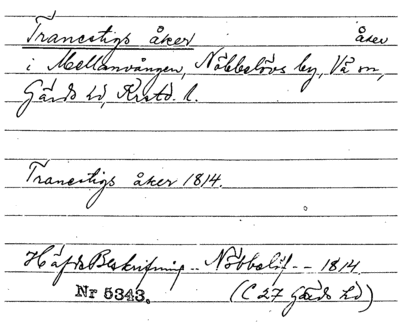 Tranestigs åker åker
i Mellanvången, Nöbbelövs by, Vä sn,
Gärds hd, Krstd. l.
Tranestigs åker 1814.
HäfdeBeskrifning -- Nöbbelöf -- 1814
Nr 5343. (C 27 Gärds hd)